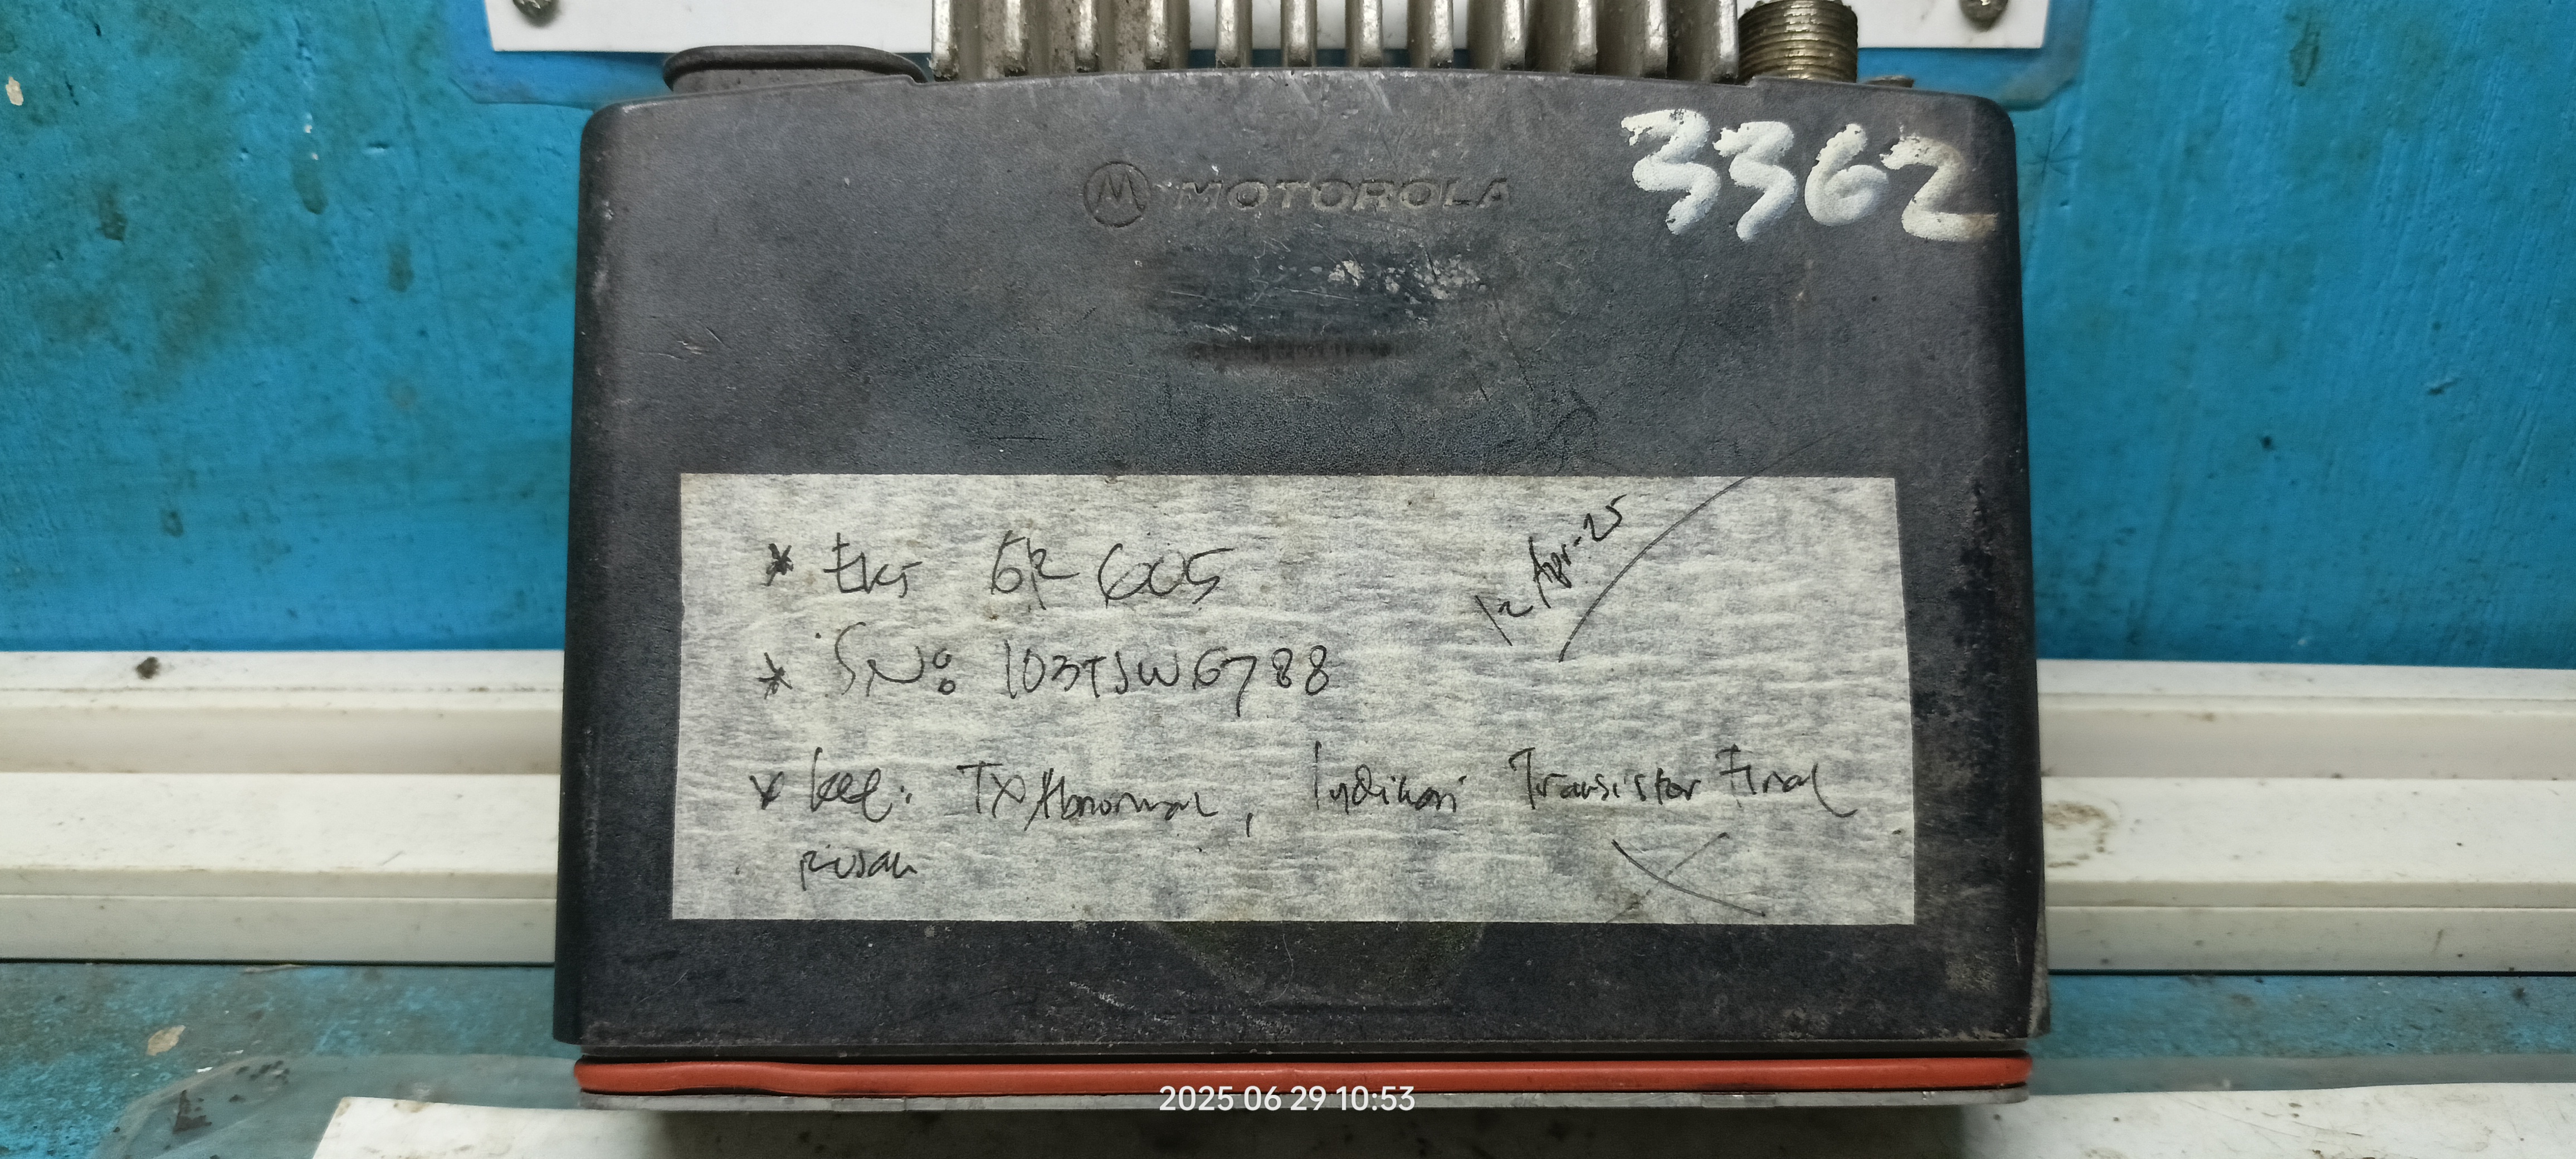 MOTOROLA
3362
12/Apr-25
* Eks GR 605
* S.N: 103TSW6788
* Ket: TX Abnormal, Indikasi Transistor Final
Rusak
2025 06 29 10:53